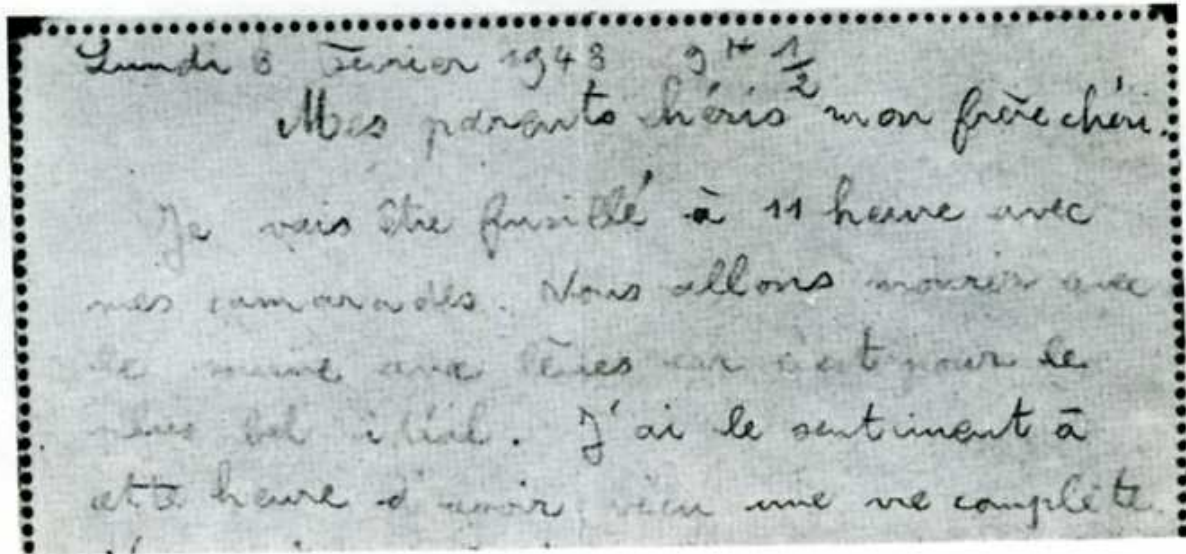 Lundi 8 Février 1943 9 H 1/2
Mes parents chéris mon frère chéri.
Je vais être fusillé à 11 heure avec
mes camarades. Nous allons mourir avec
le sourire aux lèvres car c'est pour le
plus bel idéal. J'ai le sentiment à
cette heure d'avoir vécu une vie complète